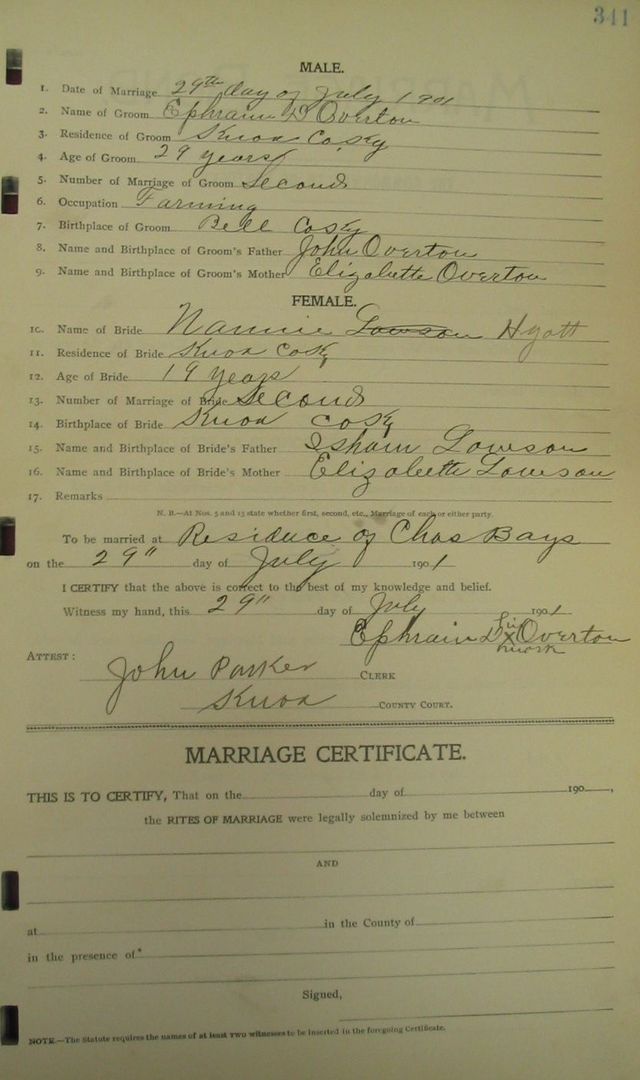 341
MALE.
1. Date of Marriage 29th day of July 1901
2. Name of Groom Ephraim D Overton
3. Residence of Groom Knox Co Ky
4. Age of Groom 29 years
5. Number of Marriage of Groom Second
6. Occupation Farming
7. Birthplace of Groom Bell Co Ky
8. Name and Birthplace of Groom's Father John Overton
9. Name and Birthplace of Groom's Mother Elizabette Overton
FEMALE.
10. Name of Bride Nannie Lawson Hyatt
11. Residence of Bride Knox Co Ky
12. Age of Bride 19 years
13. Number of Marriage of Bride Second
14. Birthplace of Bride Knox Co Ky
15. Name and Birthplace of Bride's Father Isham Lawson
16. Name and Birthplace of Bride's Mother Elizabette Lawson
17. Remarks
N. B.—At Nos. 5 and 13 state whether first, second, etc., Marriage of each or either party.
To be married at Residuce of Chas Bays
on the 29" day of July 1901
I CERTIFY that the above is correct to the best of my knowledge and belief.
Witness my hand, this 29" day of July 1901
Ephraim D his x mark Overton
ATTEST:
John Parker CLERK
Knox COUNTY COURT.
MARRIAGE CERTIFICATE.
THIS IS TO CERTIFY, That on the day of 190 ,
the RITES OF MARRIAGE were legally solemnized by me between
AND
at in the County of
in the presence of*
Signed,
NOTE.—The Statute requires the names of at least two witnesses to be inserted in the foregoing Certificate.